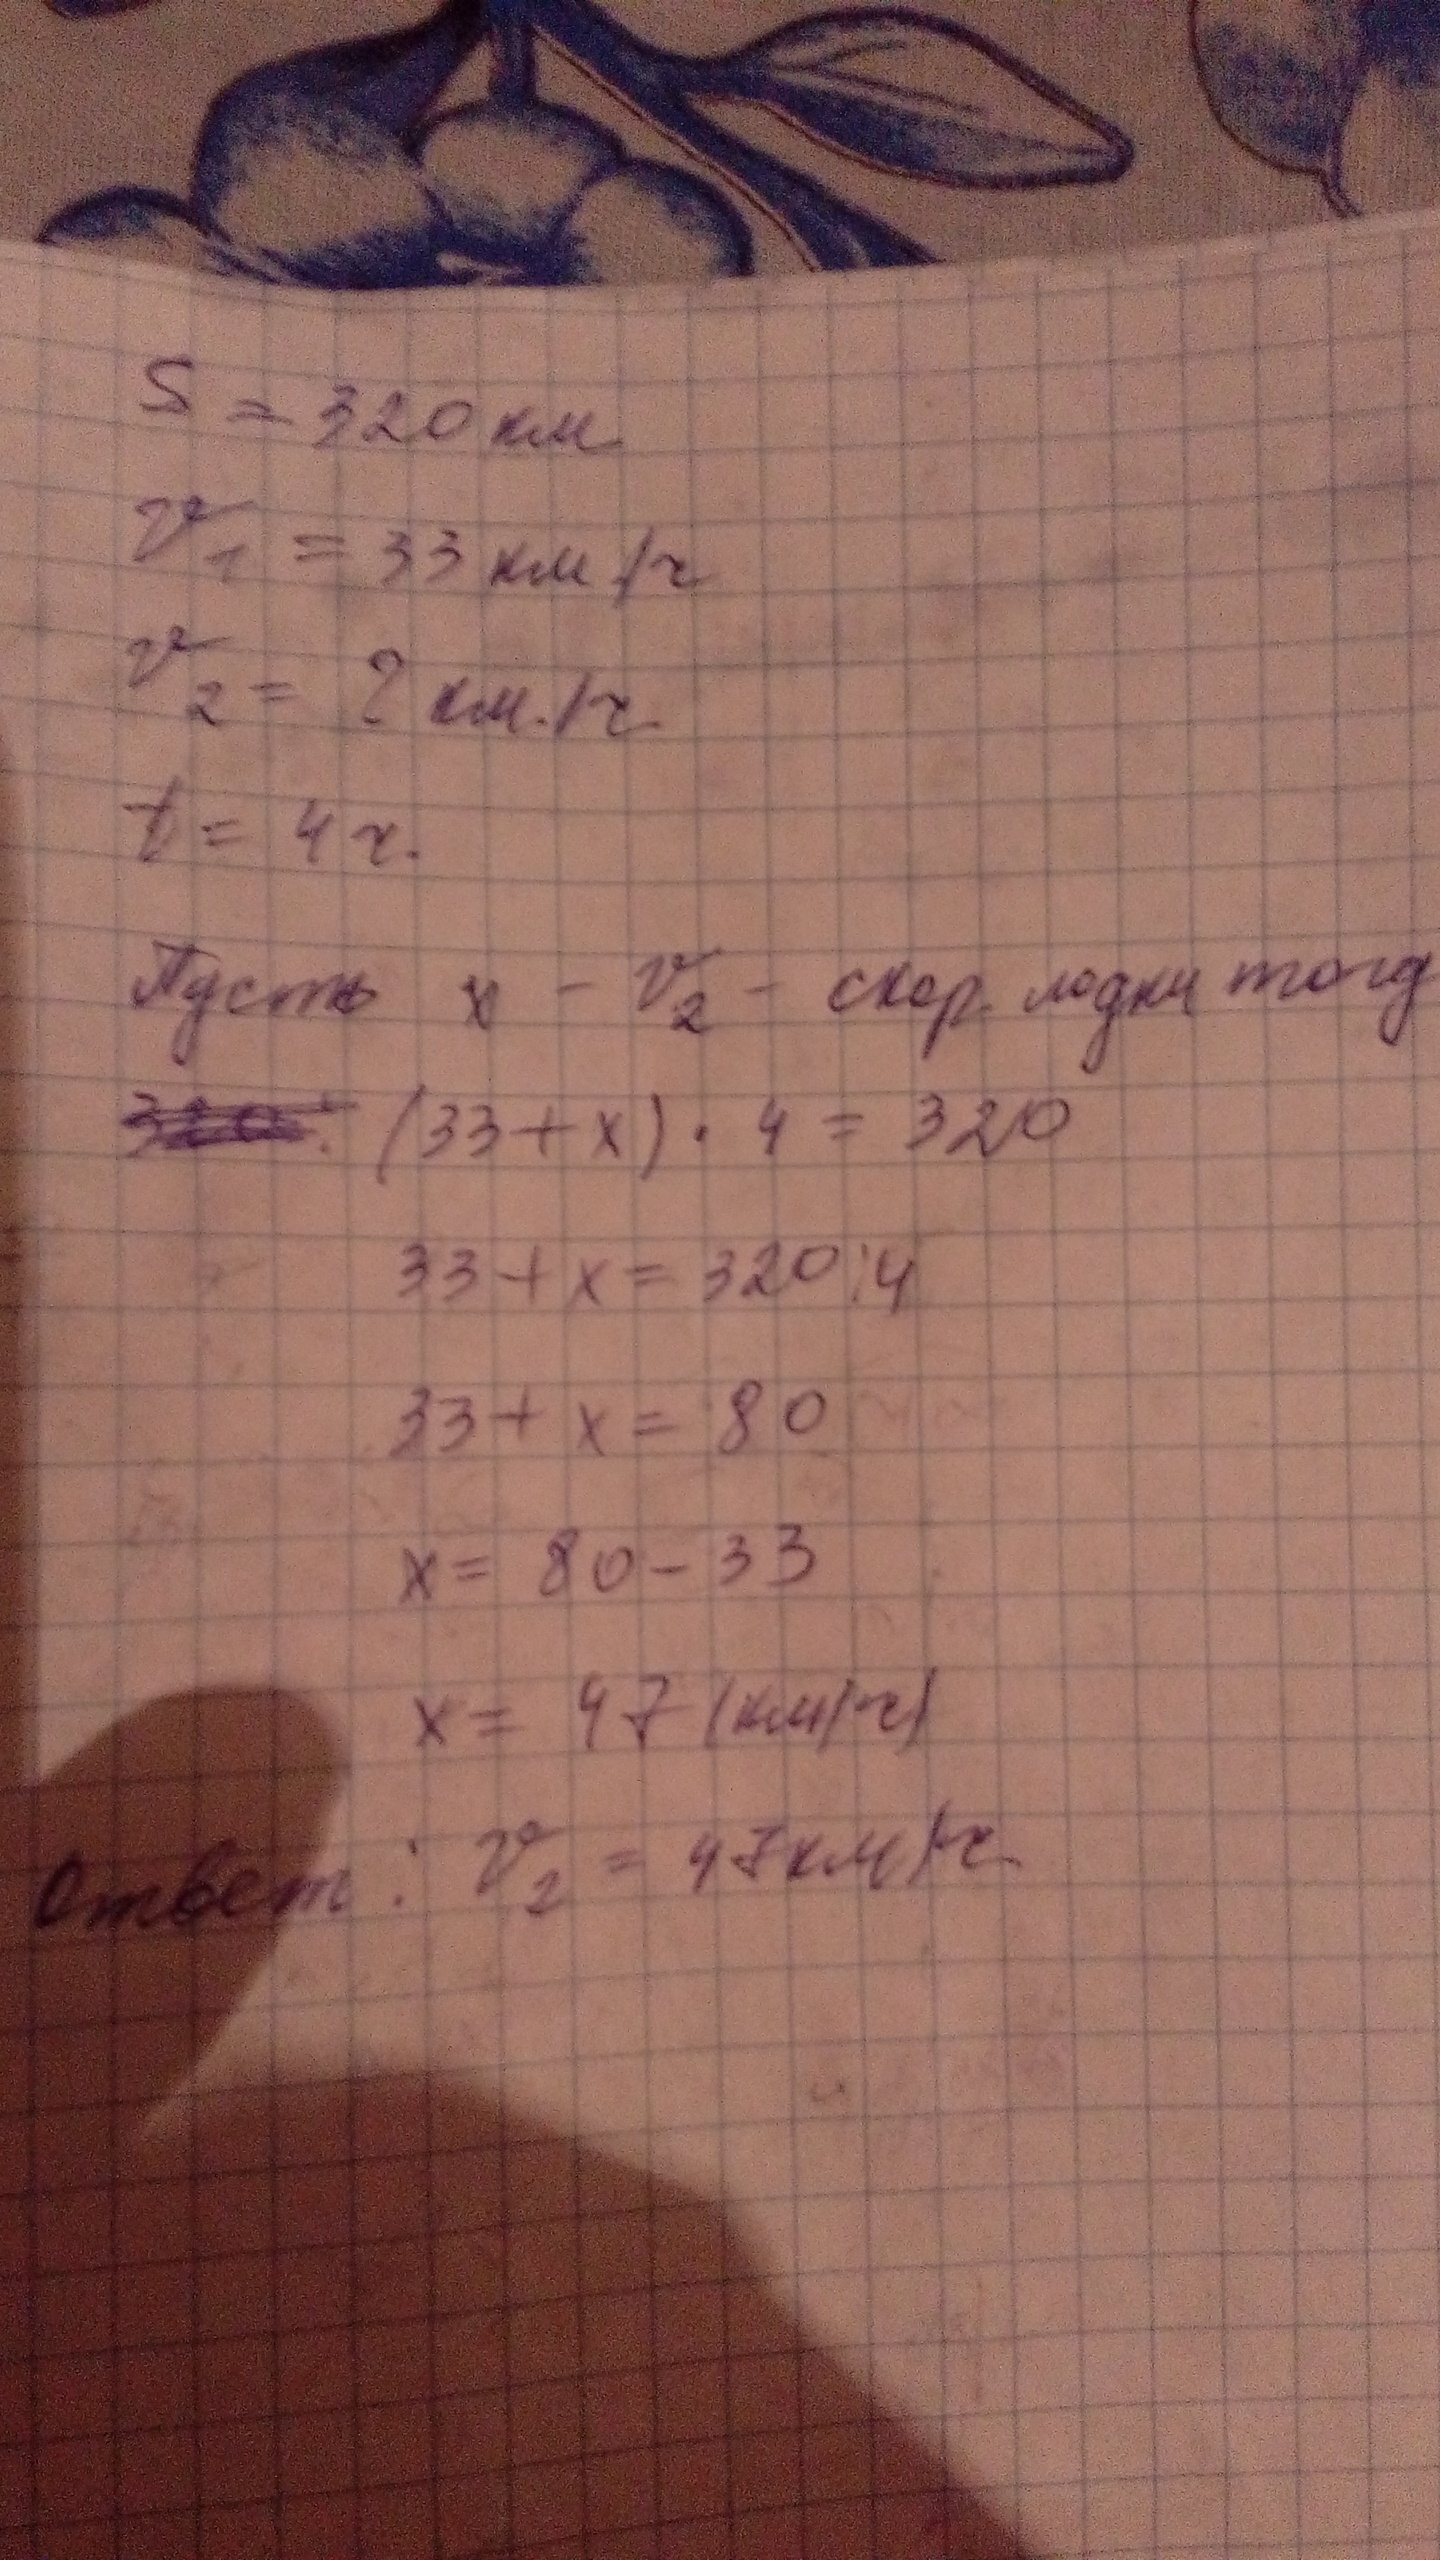 S = 320 км
v1 = 33 км/ч
v2 = ? км./ч
t = 4 ч.
Пусть x - v2 - скор. лодки тогд
320: (33 + x) · 4 = 320
33 + x = 320:4
33 + x = 80
x = 80 - 33
x = 47 (км/ч)
Ответ: v2 = 47 км/ч